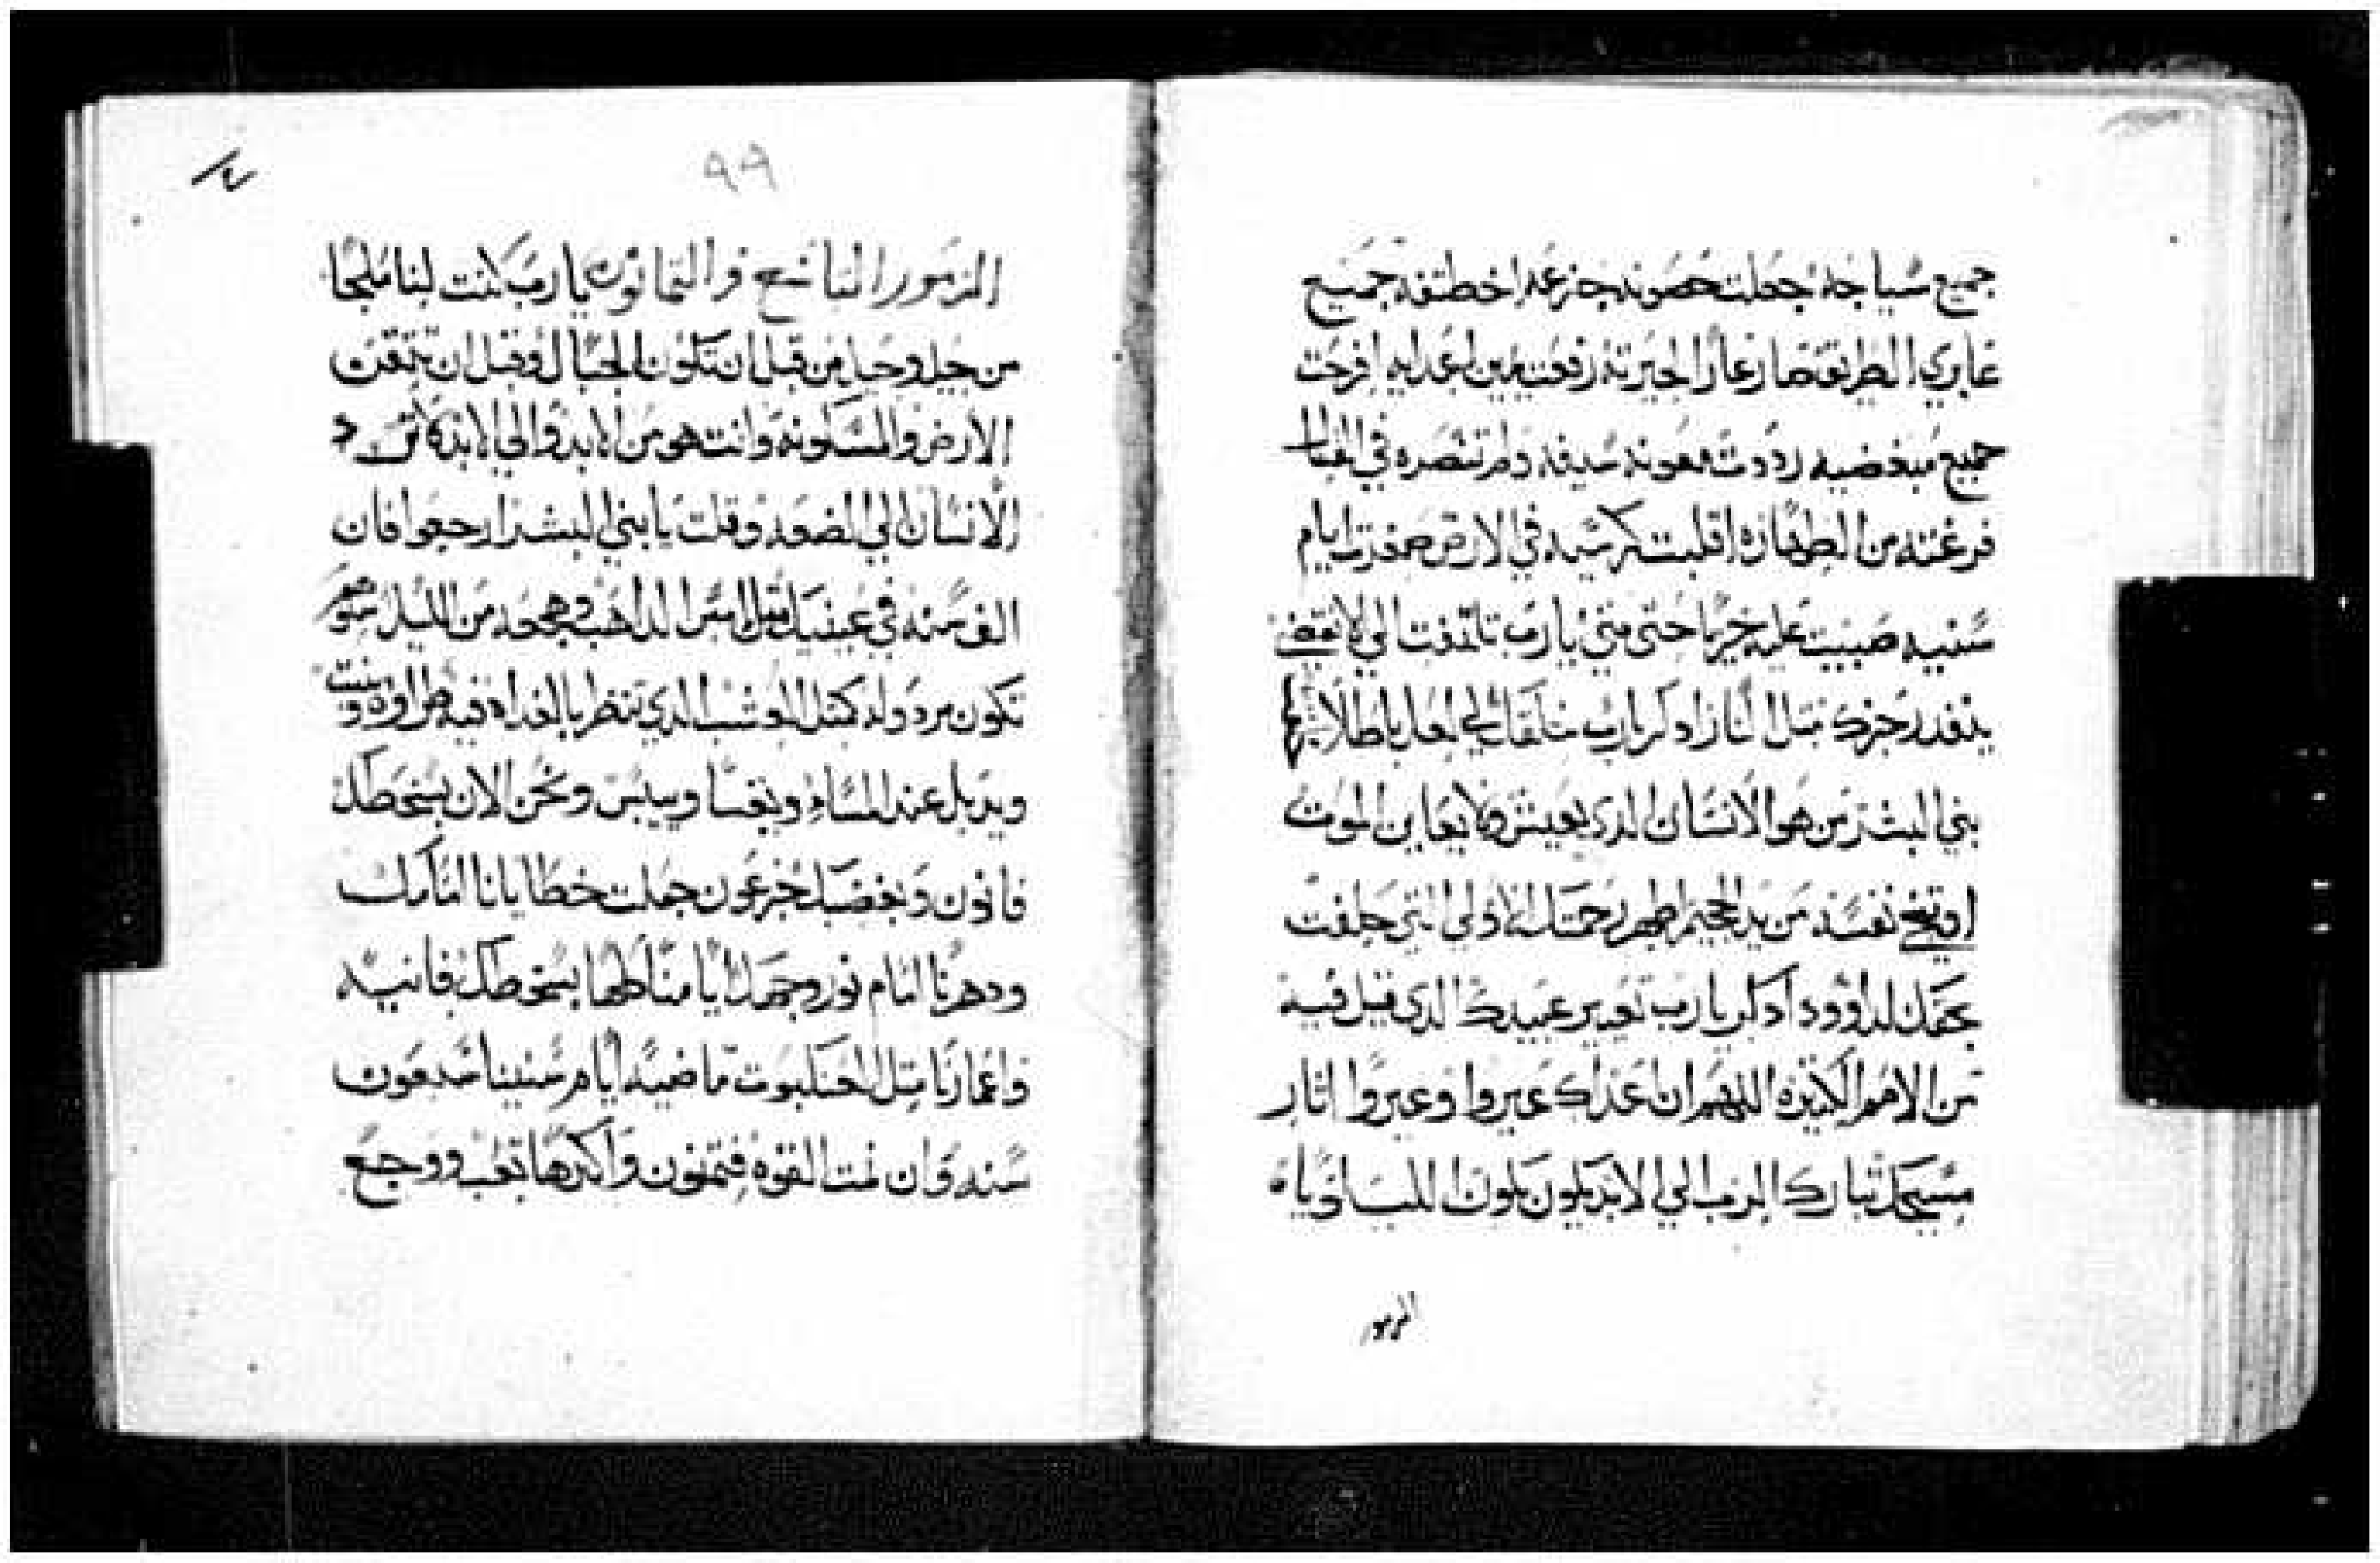 جميع سياجه جعلت حصونه جزعه اخطفه جميع
عابري الطريق صار عارا لجيرته رفعت يمين اعدايه افرحت
جميع مبغضيه رددت معونه سيفه ولم تنصره في القتال
فرغته من الطهاره اقلبت كرسيه في الارض صغرت ايام
سنيه صببت عليه خزيا حتى متى يا رب تلتفت الي الانقضا
يتقد رجزك مثل النار ادكر يا رب لعل باطلا
بني البشر من هو الانسان الدي يعيش ولا يعاين الموت
او ينجي نفسه من يد الجحيم رحمتك الاولي التي حلفت
بحقك لداوود ادكر يا رب تعيير عبيدك الدي قبل فيه
من الامم الكثيره اللهم ان اعداك عيروا وعيروا اثار
مسيحك تبارك الرب الي الابد يكون يكون الليلويا
المزمور
٩٩
المزمور التاسع والثمانون يا رب كنت لنا ملجا
من جيل وجيل من قبل ان تكون الجبال وقبل ان تتقن
الارض والمسكونه وانت هو من الابد والي الابد
الانسان الي الضعه وقلت يا بني البشر ارجعوا فان
الف سنه في عينيك مثل امس الداهب وهجعه من الليل
تكون مردوله كمثل العشب الدي ينظر بالغداه فيه طراوه وينبت
ويدبل عند المساء ويقسا وييبس ونحن الان بسخطك
فانون وبغضبك جزعون جعلت خطايانا امامك
ودهرنا امام نور وجهك ايامنا كلها بسخطك فانيه
واعمارنا مثل العنكبوت ماضيه ايام سنينا سبعون
سنه وان نمت القوه فثمنون واكثرها تعب ووجع